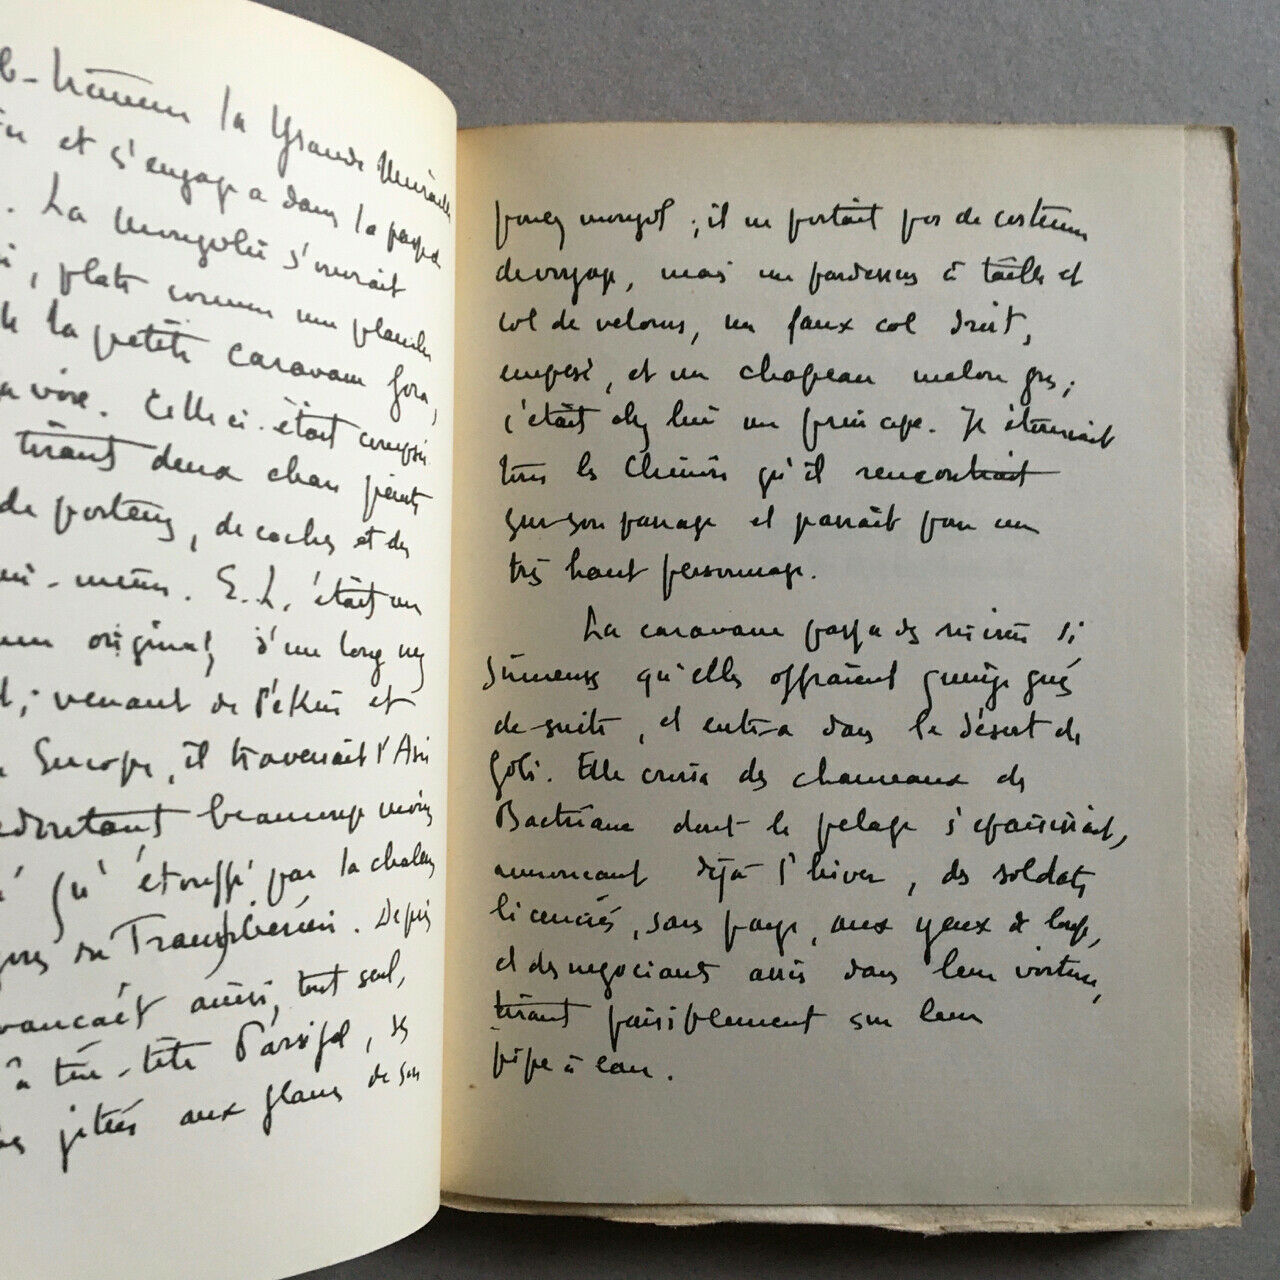 la Grande Muraille
et s'engagea dans la passe
. La Mongolie s'ouvrait
, plate comme une planche
la petite caravane
. Celle-ci était composée
tirant deux chars peints
de porteurs, de coches et des
. E.L. était un
original, d'une long nez
; venant de Pékin et
Europe, il traversait l'Asie
redoutant beaucoup moins
qu'étouffé par la chaleur
du Transsibérien. Depuis
avançait ainsi, tout seul,
à tue-tête Parsifal, ses
jetées aux flancs de son
poney mongol ; il ne portait pas de costume
de voyage, mais un pardessus à taille et
col de velours, un faux col droit,
empesé, et un chapeau melon gris ;
c'était chez lui un principe. Il étonnait
tous les Chinois qu'il rencontrait
sur son passage et passait pour un
très haut personnage.
La caravane passa des rizières si
immenses qu'elles offraient
de suite, et entra dans le désert de
Gobi. Elle croisa des chameaux de
Bactriane dont le pelage s'épaississait,
annonçant déjà l'hiver, des soldats
licenciés, sans paye, aux yeux de loup,
et des négociants assis dans leur voiture,
tirant paisiblement sur leur
pipe à eau.